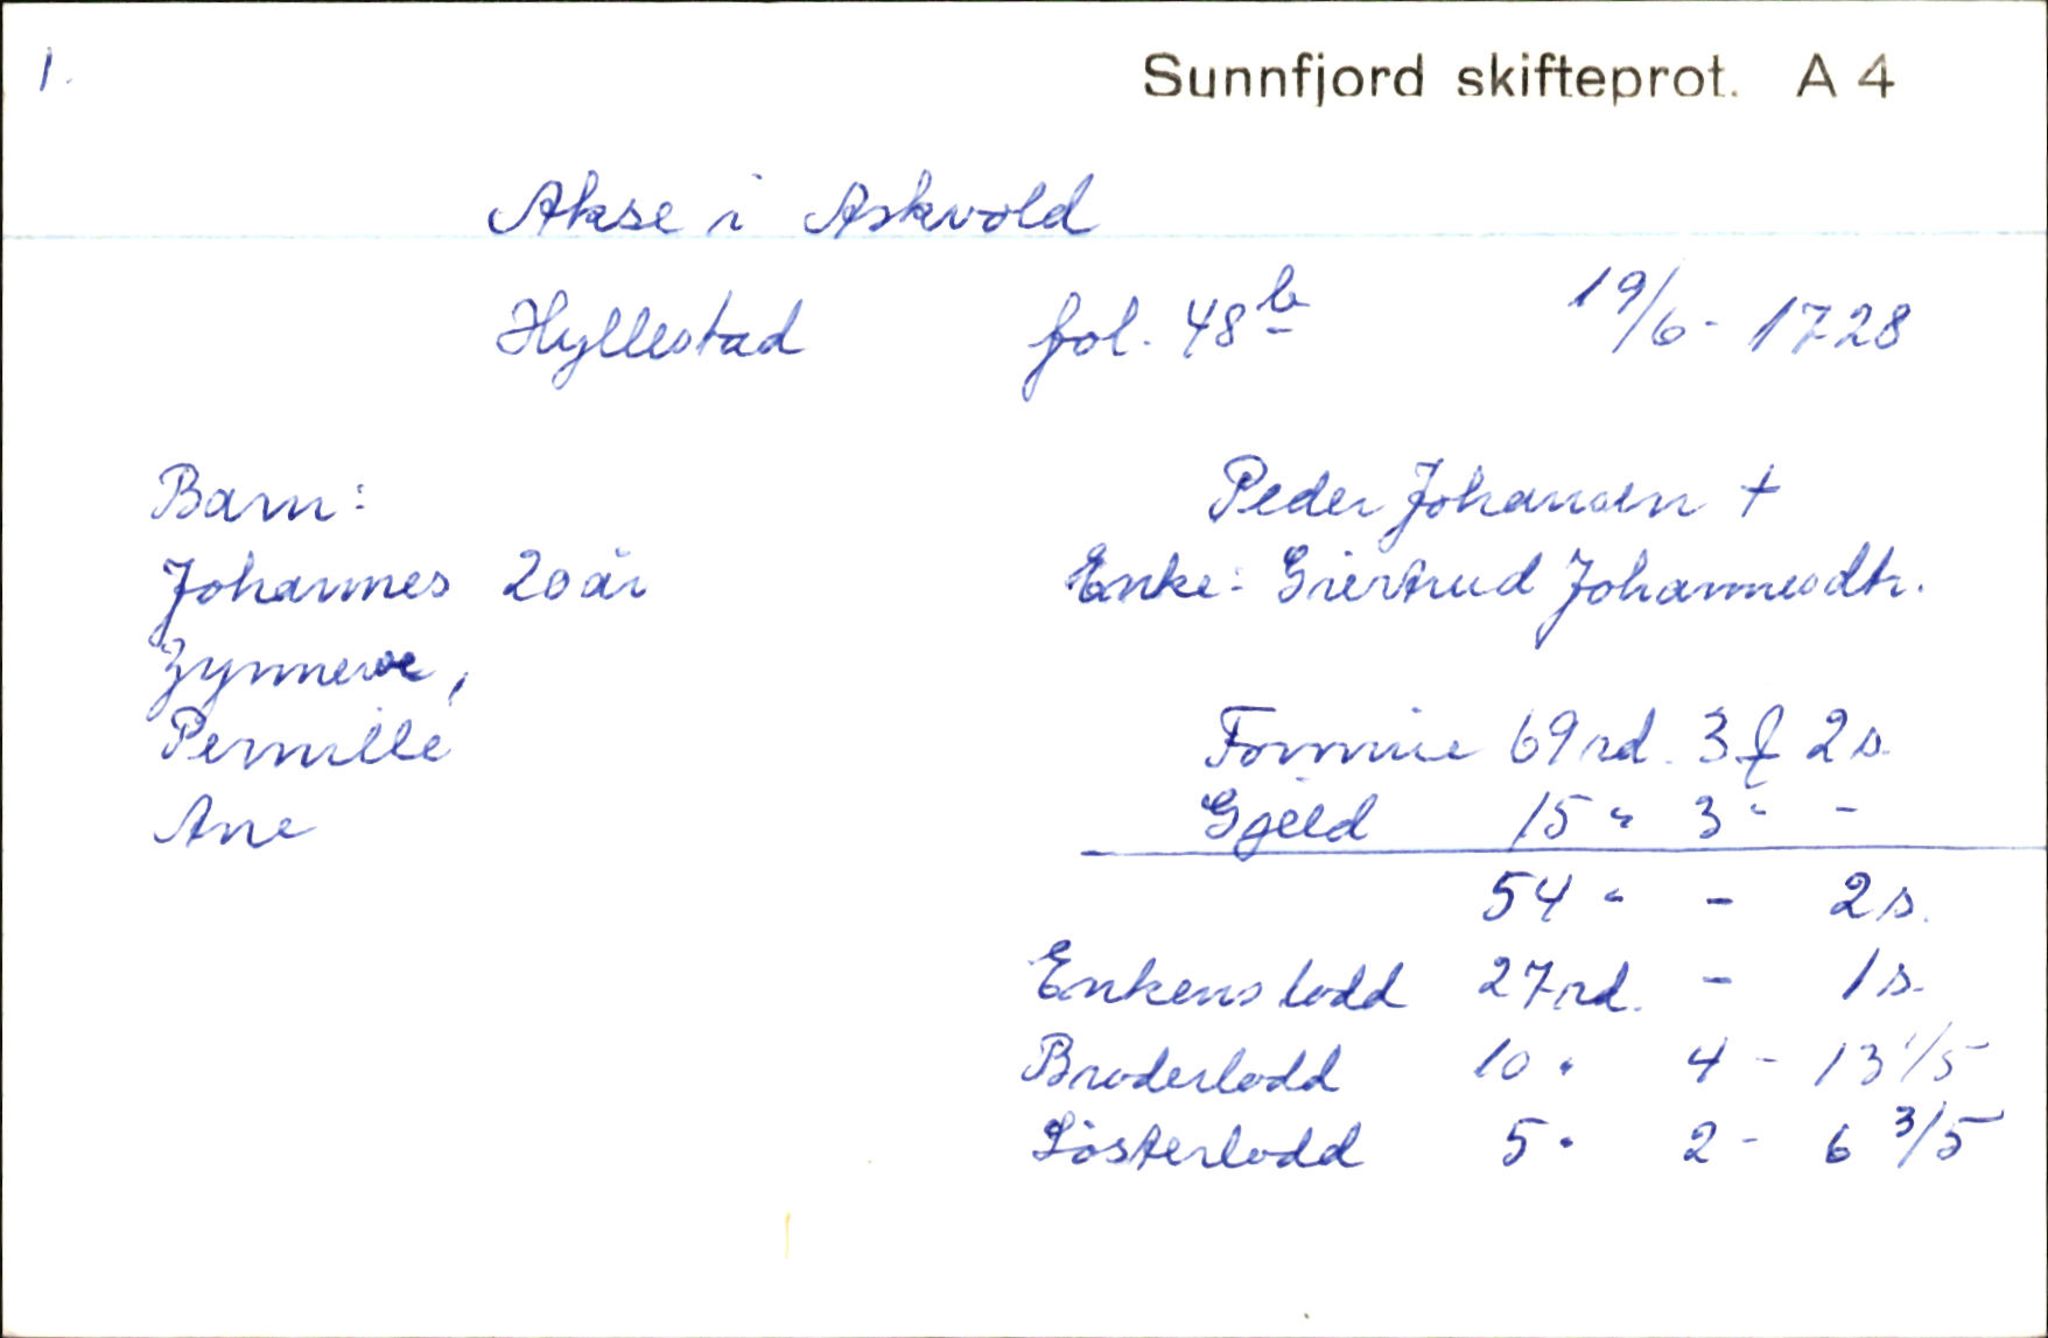 1.
Sunnfjord skifteprot. A 4
Akse i Askvold
Hyllestad fol. 48b 19/6 - 1728
Barn: Peder Johansen +
Johannes 20 år Enke: Giertrud Johannesdtr.
Zynneve,
Pernille Formue 69 rd. 3 ƒ 2 s.
Ane Gjeld 15 " 3 " -
54 " - 2 s.
Enkens lodd 27 rd. - 1 s.
Broderlodd 10 " 4 - 13 1/5
Søsterlodd 5 " 2 - 6 3/5